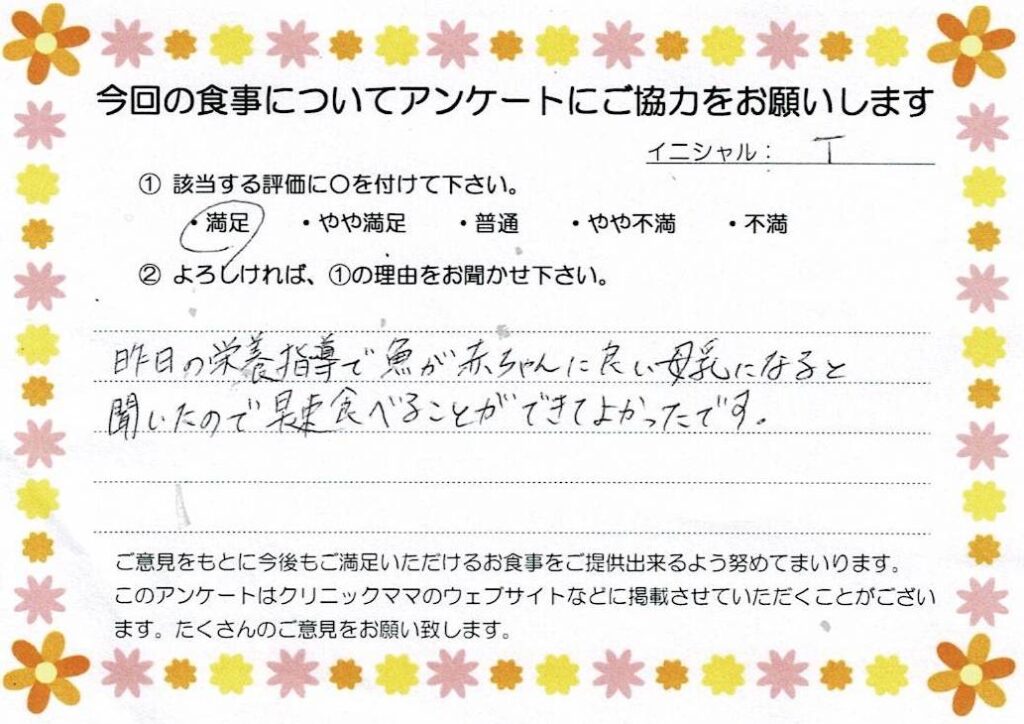 今回の食事についてアンケートにご協力をお願いします
イニシャル： T
① 該当する評価に〇を付けて下さい。
・満足 ・やや満足 ・普通 ・やや不満 ・不満
② よろしければ、①の理由をお聞かせ下さい。
昨日の栄養指導で魚が赤ちゃんに良い母乳になると
聞いたので早速食べることができてよかったです。
ご意見をもとに今後もご満足いただけるお食事をご提供出来るよう努めてまいります。
このアンケートはクリニックママのウェブサイトなどに掲載させていただくことがござい
ます。たくさんのご意見をお願い致します。